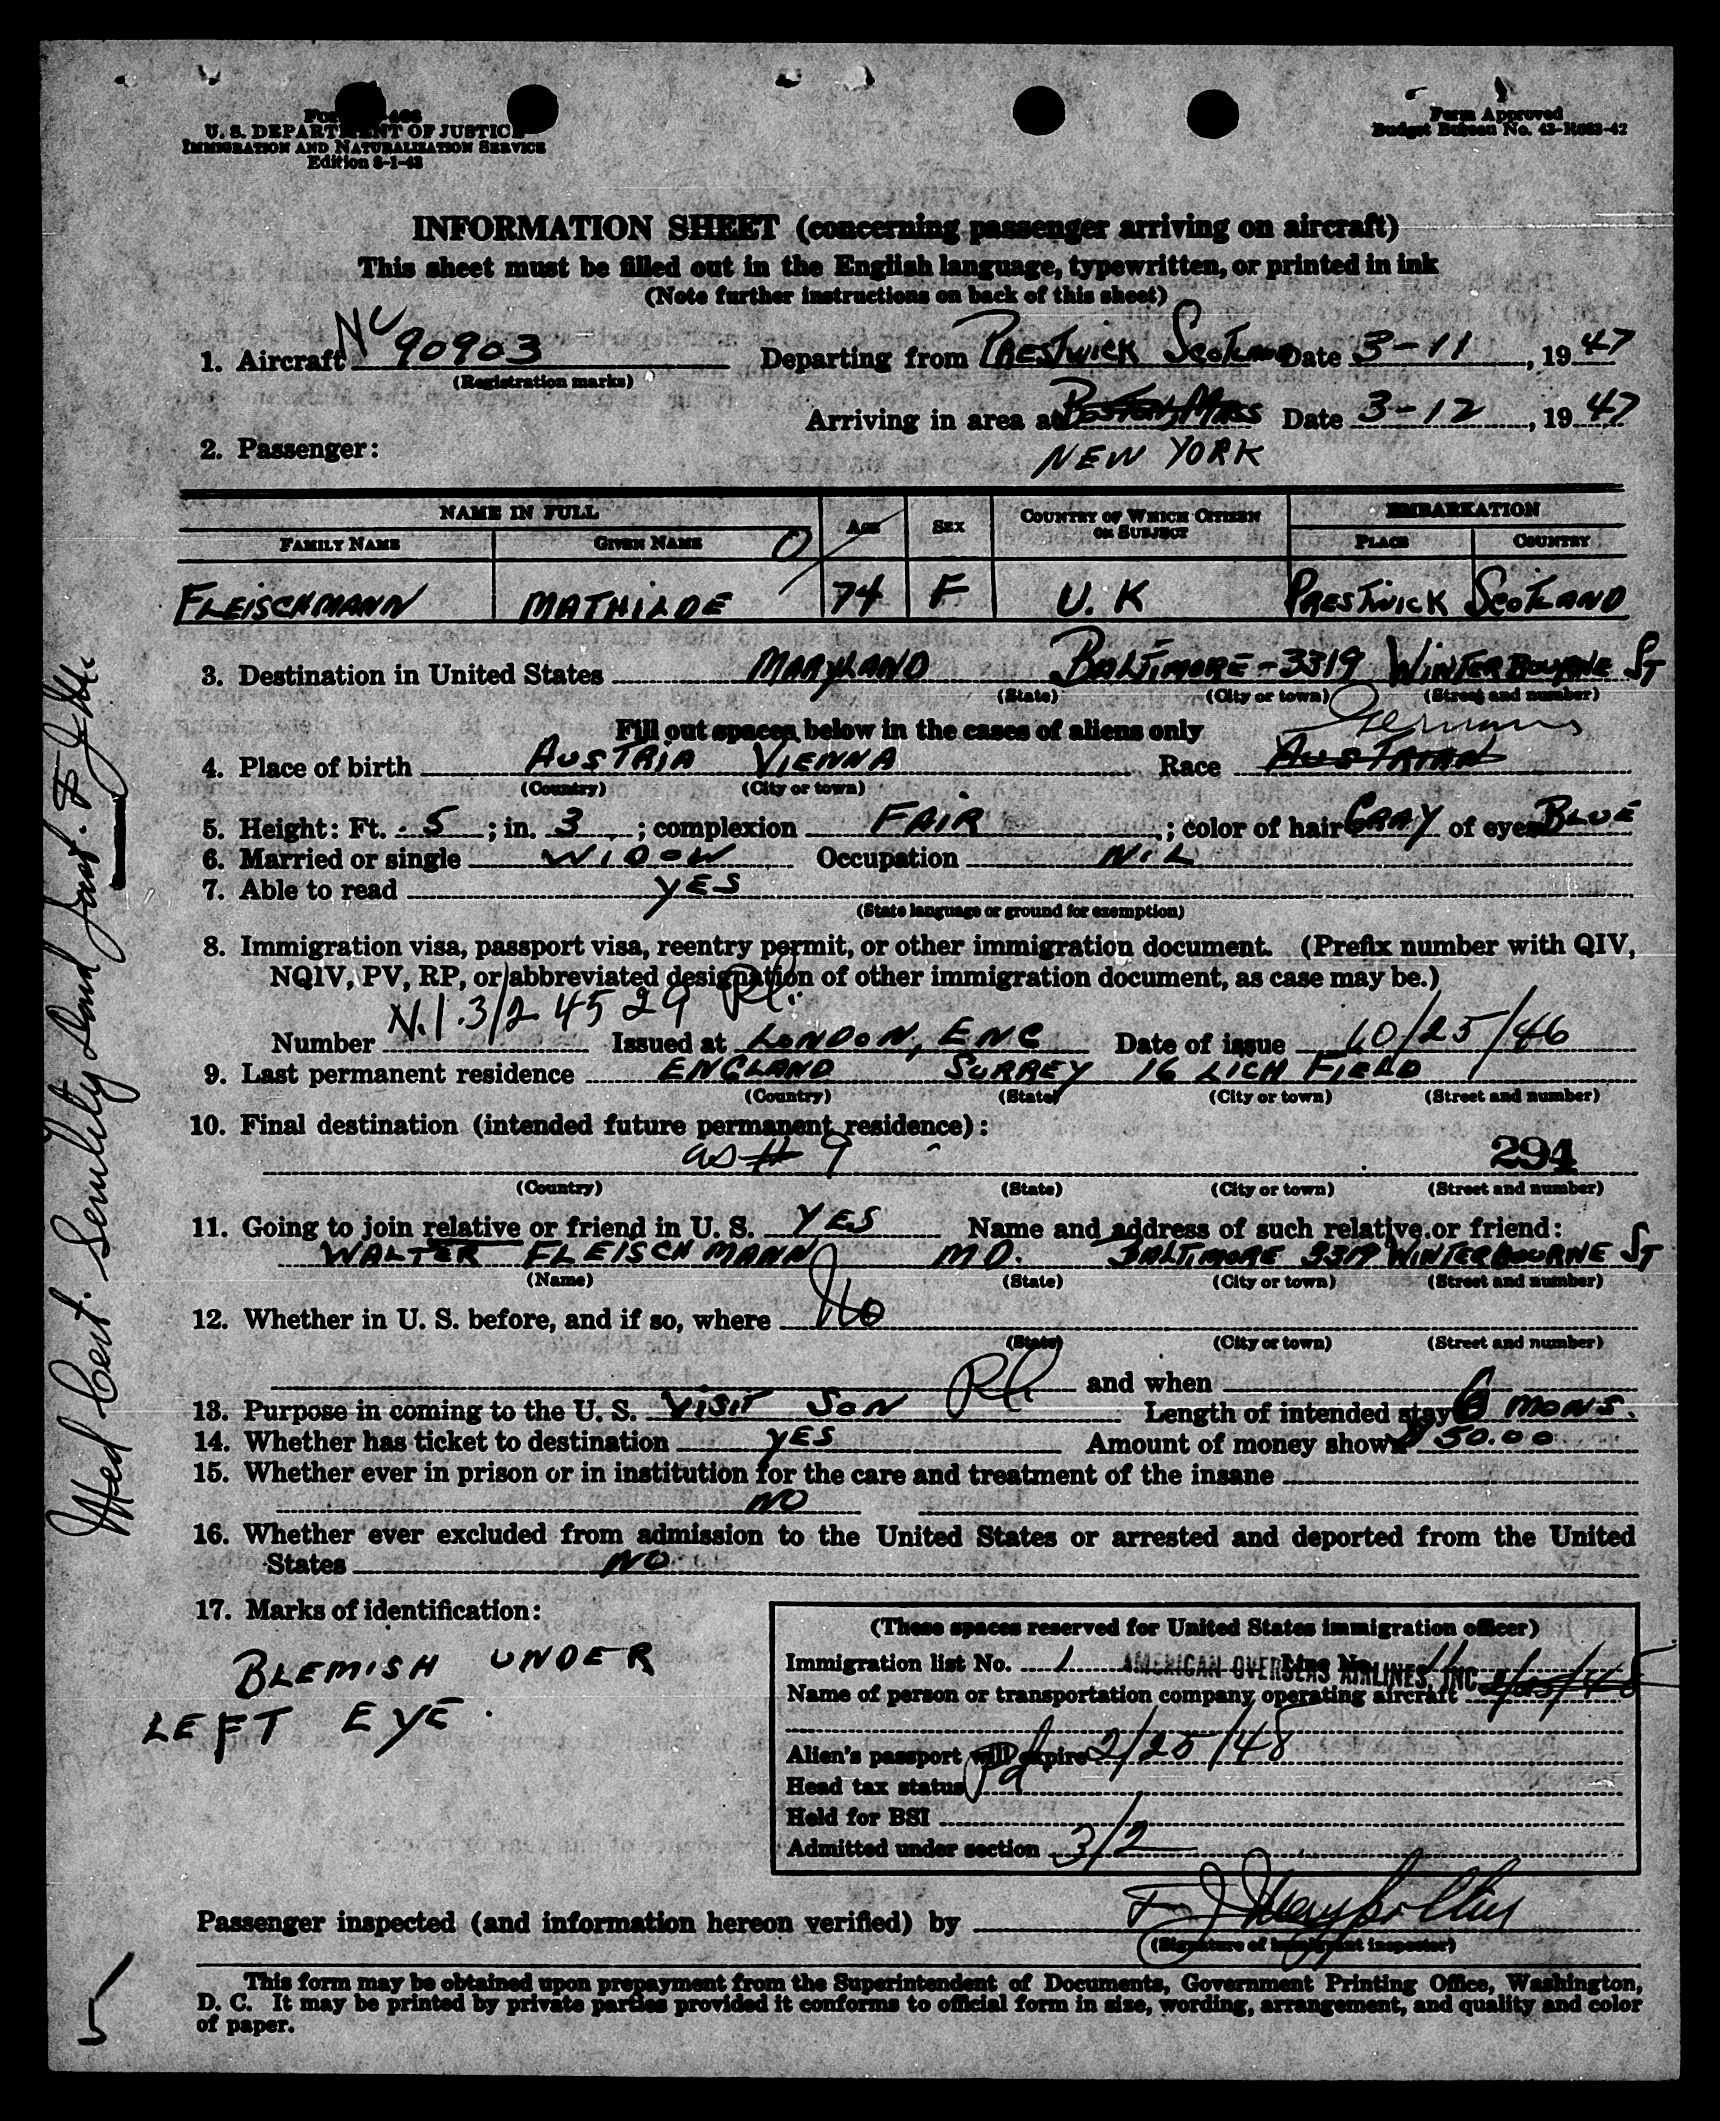 U. S. DEPARTMENT OF JUSTICE
IMMIGRATION AND NATURALIZATION SERVICE
Edition 8-1-43
Form Approved
Budget Bureau No. 43-R063-42
INFORMATION SHEET (concerning passenger arriving on aircraft)
This sheet must be filled out in the English language, typewritten, or printed in ink
(Note further instructions on back of this sheet)
1. Aircraft NC 90903 Departing from PRESTWICK SCOTLAND Date 3-11, 1947
(Registration marks)
Arriving in area at BOSTON, MASS Date 3-12, 1947
2. Passenger: NEW YORK
NAME IN FULL AGE SEX COUNTRY OF WHICH CITIZEN OR SUBJECT EMBARKATION
FAMILY NAME GIVEN NAME PLACE COUNTRY
FLEISCHMANN MATHILDE 74 F U.K PRESTWICK SCOTLAND
3. Destination in United States MARYLAND BALTIMORE-3319 WINTERBOURNE ST
(State) (City or town) (Street and number)
Fill out spaces below in the cases of aliens only German
4. Place of birth AUSTRIA VIENNA Race AUSTRIAN
(Country) (City or town)
5. Height: Ft. 5; in. 3; complexion FAIR; color of hair GRAY of eyes BLUE
6. Married or single WIDOW Occupation NIL
7. Able to read YES
(State language or ground for exemption)
8. Immigration visa, passport visa, reentry permit, or other immigration document. (Prefix number with QIV,
NQIV, PV, RP, or abbreviated designation of other immigration document, as case may be.)
Number V.1.3/2 4529 Issued at LONDON, ENG Date of issue 10/25/46
9. Last permanent residence ENGLAND SURREY 16 LICHFIELD
(Country) (State) (City or town) (Street and number)
10. Final destination (intended future permanent residence):
as # 9 294
(Country) (State) (City or town) (Street and number)
11. Going to join relative or friend in U. S. YES Name and address of such relative or friend:
WALTER FLEISCHMANN MD. BALTIMORE 3319 WINTERBOURNE ST
(Name) (State) (City or town) (Street and number)
12. Whether in U. S. before, and if so, where No
(State) (City or town) (Street and number)
and when
13. Purpose in coming to the U. S. VISIT SON Length of intended stay 6 MONS.
14. Whether has ticket to destination YES Amount of money shown $50.00
15. Whether ever in prison or in institution for the care and treatment of the insane
NO
16. Whether ever excluded from admission to the United States or arrested and deported from the United
States NO
17. Marks of identification:
BLEMISH UNDER
LEFT EYE.
(These spaces reserved for United States immigration officer)
Immigration list No. 1 Line No. 11
AMERICAN OVERSEAS AIRLINES, INC.
Name of person or transportation company operating aircraft
Alien's passport will expire 2/25/48
Head tax status Pd
Held for BSI
Admitted under section 3/2
Passenger inspected (and information hereon verified) by
(Signature of immigrant inspector)
This form may be obtained upon prepayment from the Superintendent of Documents, Government Printing Office, Washington,
D. C. It may be printed by private parties provided it conforms to official form in size, wording, arrangement, and quality and color
of paper.
Med Cert. Senility
5